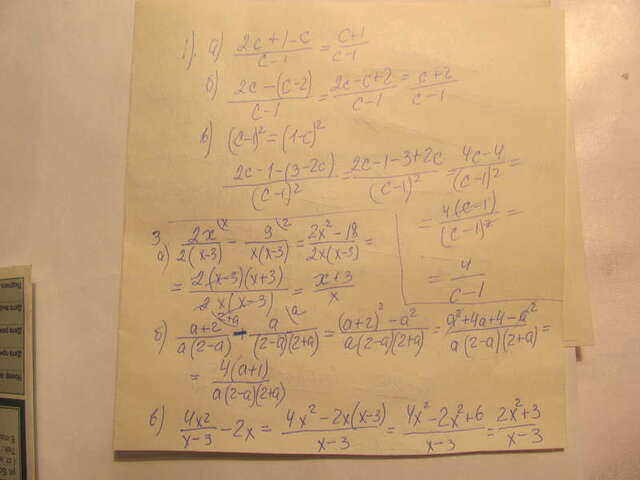 1). а) (2c+1-c)/(c-1) = (c+1)/(c-1)
б) (2c-(c-2))/(c-1) = (2c-c+2)/(c-1) = (c+2)/(c-1)
в) (c-1)² = (1-c)²
(2c-1-(3-2c))/(c-1)² = (2c-1-3+2c)/(c-1)² = (4c-4)/(c-1)² =
= 4(c-1)/(c-1)² =
= 4/(c-1)
3.
а) 2x\x/2(x-3) - 9\2/x(x-3) = (2x²-18)/2x(x-3) =
= 2(x-3)(x+3)/2x(x-3) = (x+3)/x
б) (a+2)\2+a/a(2-a) - a\a/(2-a)(2+a) = ((a+2)²-a²)/a(2-a)(2+a) = (a²+4a+4-a²)/a(2-a)(2+a) =
= 4(a+1)/a(2-a)(2+a)
в) 4x²/(x-3) - 2x = (4x²-2x(x-3))/(x-3) = (4x²-2x²+6)/(x-3) = (2x²+3)/(x-3)